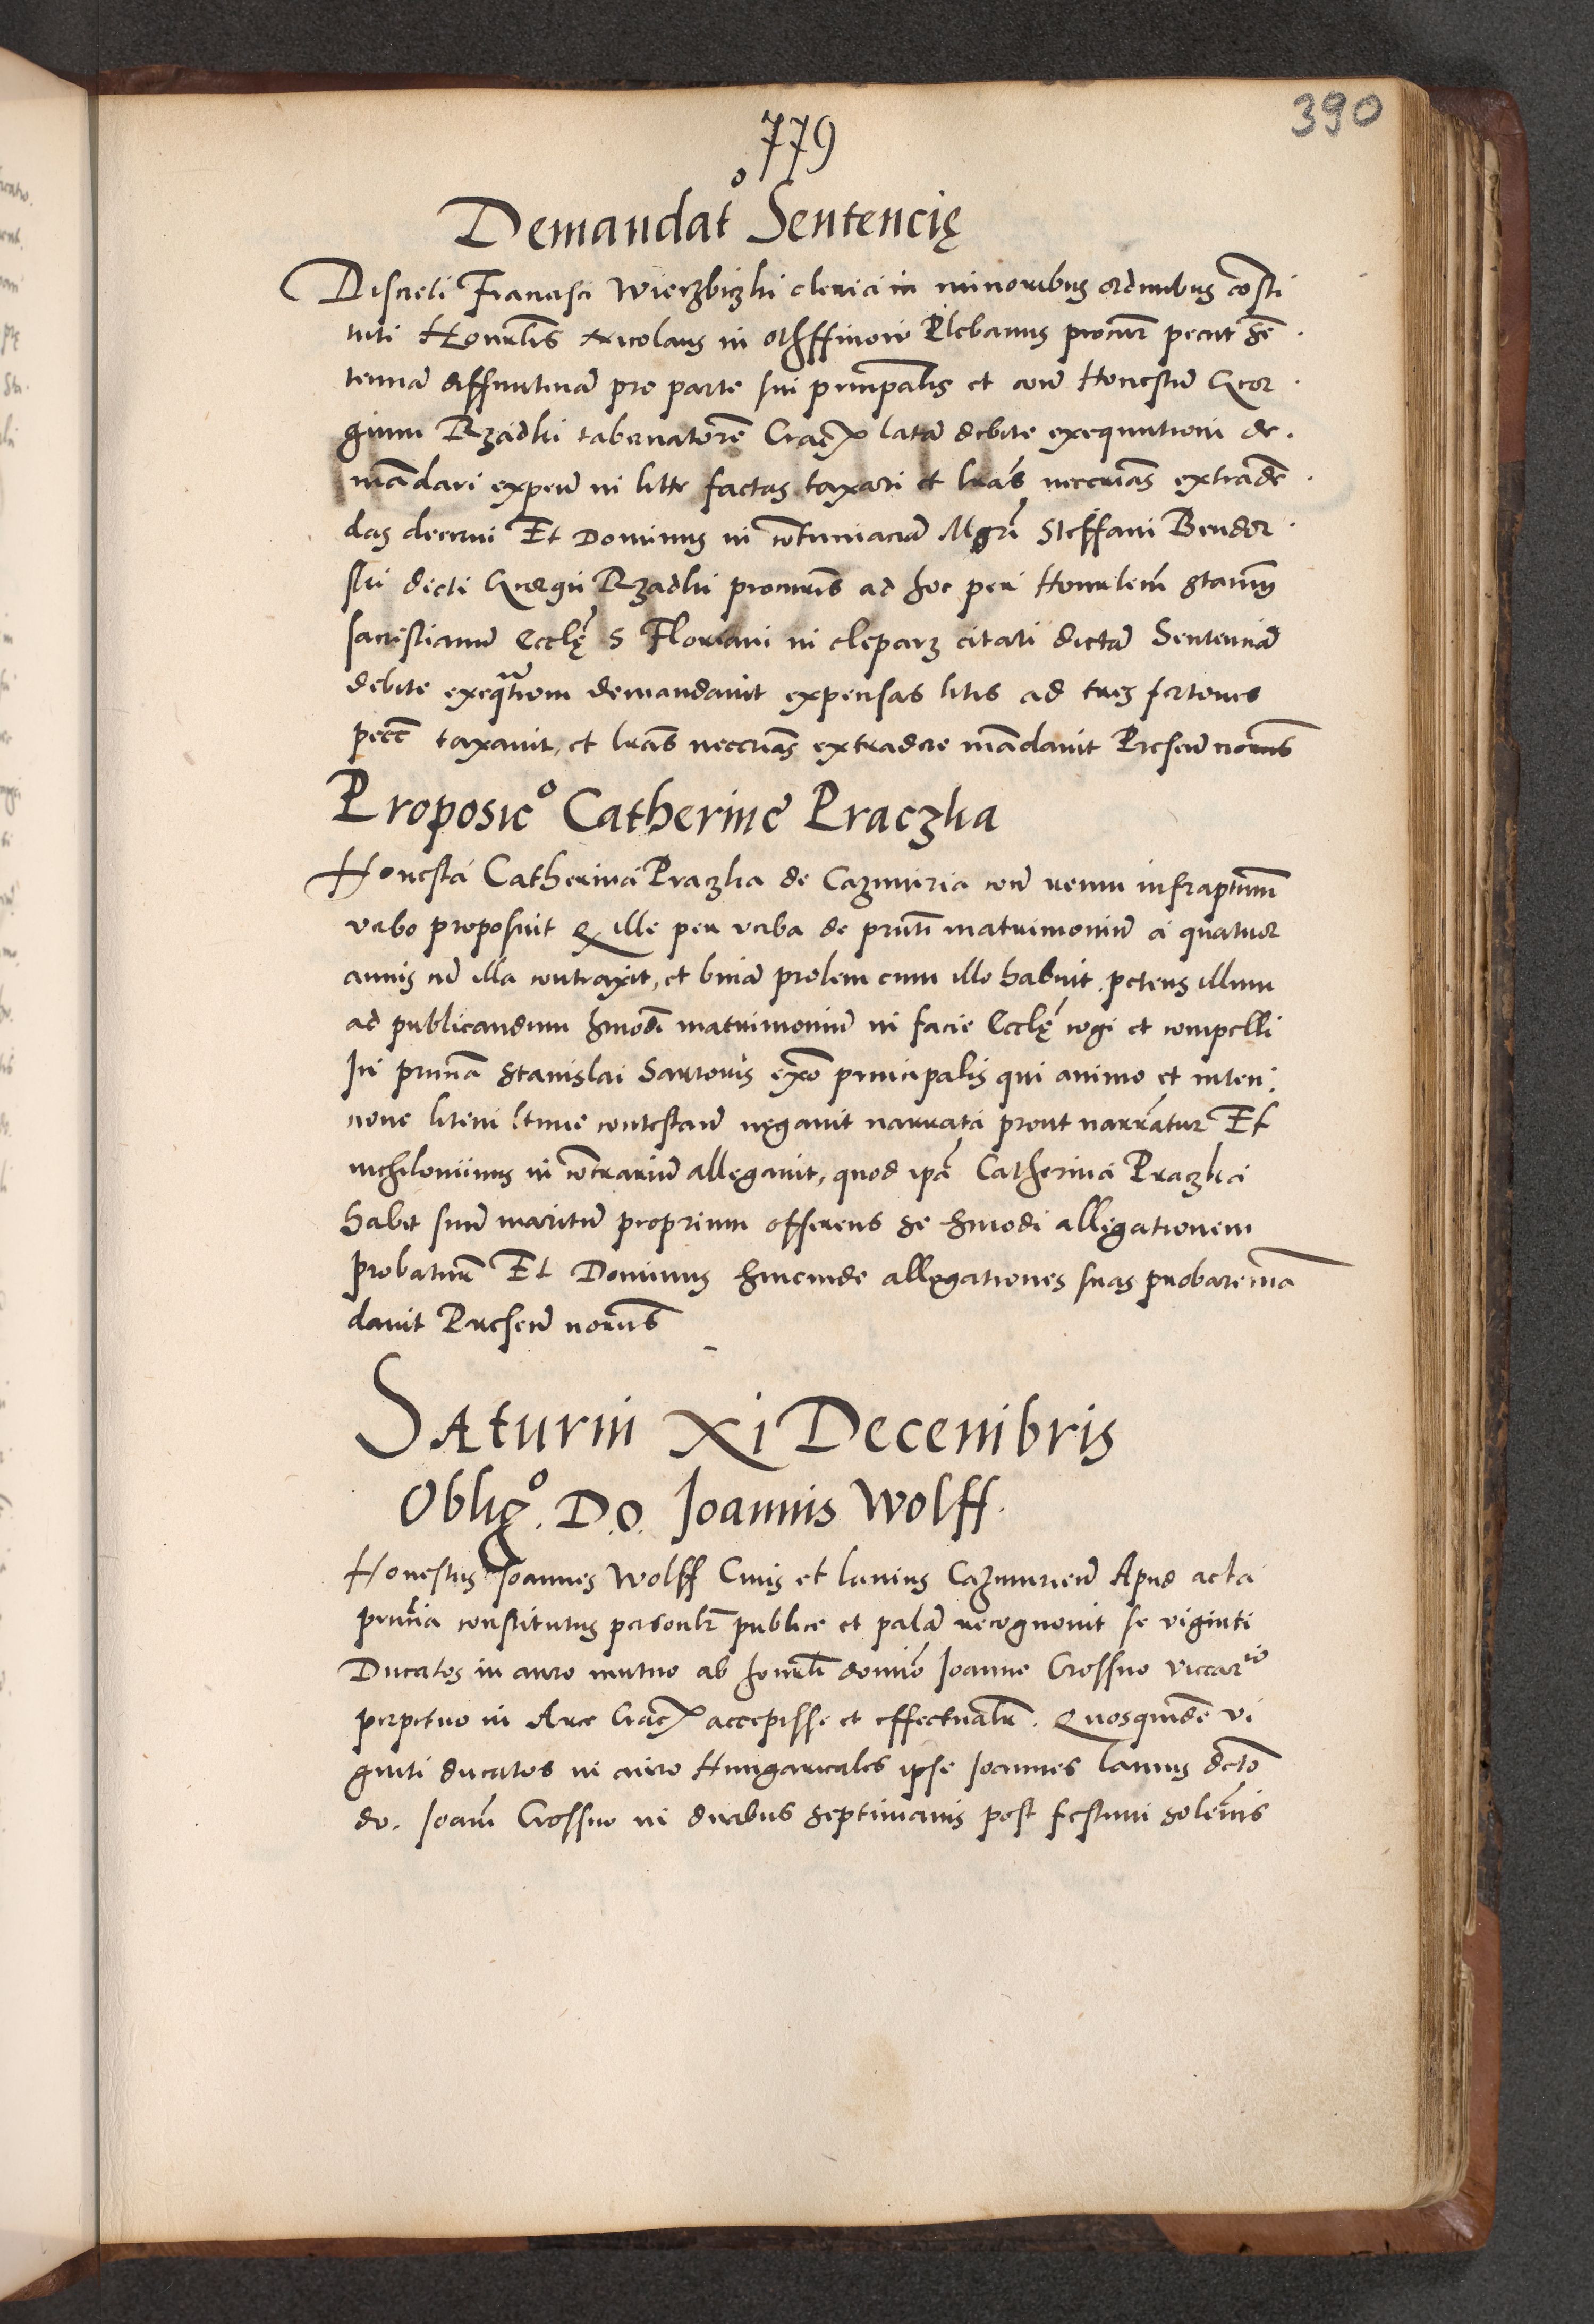 390
779
Demandat⁰ Sentencię
Discreti Francisci Wierzbiczki clerici in minoribus ordinibus cōsti
tuti Honorlis Nicolaus in Othffinow Plebanus procur petit sē
tentiā diffinitivā pro parte sui principalis et contra Honestum Geor
gium Rządki tabernatorē Crac latā debite exequutioni de
mādari expensas in lite factas taxari et lras neccrias extradē
das decerni Et Dominus in cōtumaciā Mgri Steffani Bendor
ski dicti Georgii Rzadki procuris ad hoc per Honorlem Stanis
sacristianum Ecclę S Floriani in cleparz citati dictā Sententiā
debite exeqtioni demandavit expensas litis ad tres fertones
pecc taxavit, et lras neccrias extradere mādavit Presentibus noriis
Proposic⁰ Catherine Praczka
Honesta Catherina Praczka de Cazimiria contra reum infrascriptum
verbo proposuit q ille per verba de prnti matrimonium a quatuor
annis cum illa contraxit, et binā prolem cum illo habuit. petens illum
ad publicandum hmodi matrimonium in facie Ecclę cogi et compelli
In prntiā Stanislai Sartoris ex⁰ principalis qui animo et inten
tione litem litime contestandi negavit narrata prout narrātur Et
nichilominus in cōtrarium allegavit, quod ipā Catherina Praczka
habet suum maritum proprium offerens se hmodi allegationem
probaturum Et Dominus hincinde allegationes suas probare mā
davit Presentibus noriis
Saturni Xi Decembris
Oblig⁰. Do. Joannis Wolff.
Honestus Joannes Wolff Civis et lanius Cazimirien Apud acta
prntia constitutus personlr publice et palā recognovit se viginti
Ducatos in auro mutuo ab honorli domino Joanne Crossno viccario
perpetuo in Arce Crac accepisse et effectualr. Quosquidē vi
ginti ducatos in auro Hungaricales ipse Joannes lanius dcto
do. Joanni Crossno in duabus septimanis post festum solēnis